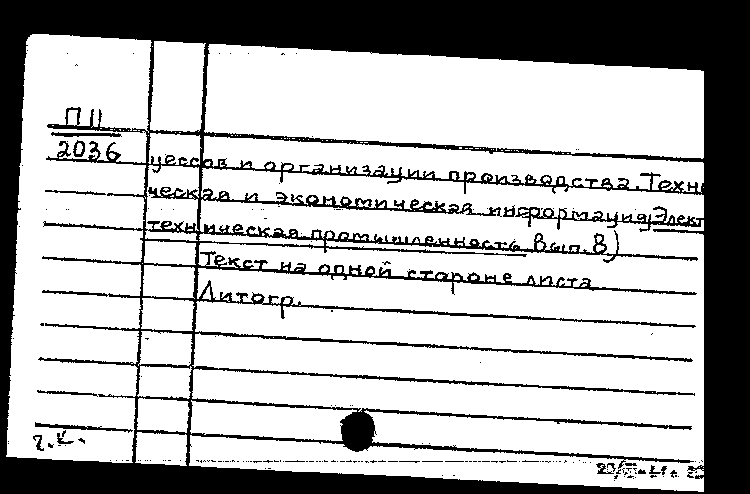 П II
2036
цессов и организации производства. Техни
ческая и экономическая информация) Элект
техническая промышленность Вып. 8)
Текст на одной стороне листа
Литогр.
г.к.